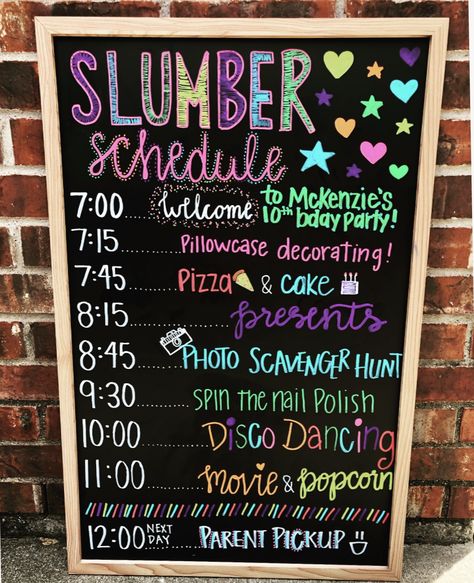 SLUMBER
Schedule
7:00 welcome to McKenzie's 10th bday Party!
7:15 Pillowcase decorating!
7:45 Pizza & cake
8:15 presents
8:45 PHOTO SCAVENGER HUNT
9:30 SPIN THE NAIL POLISH
10:00 DISCO DANCING
11:00 Movie & popcorn
12:00 NEXT DAY PARENT PICKUP